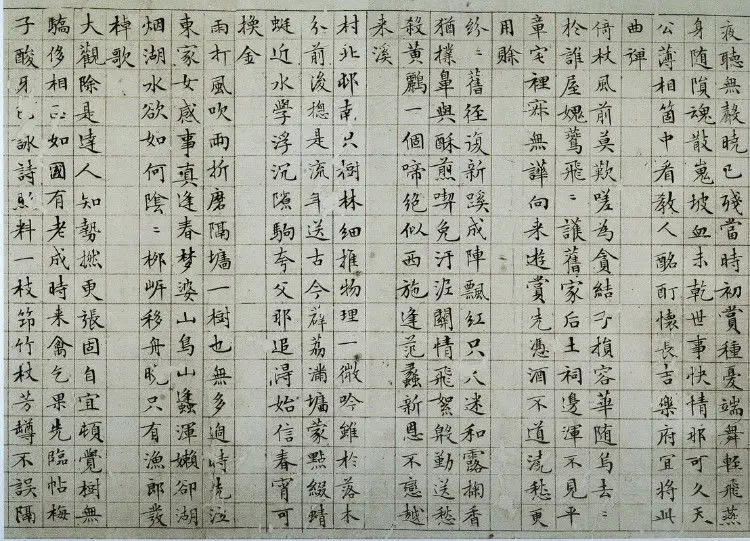 夜聽無聲曉已殘當時初賞種憂端舞輕飛燕
身随隕魂散嵬坡血未乾世事快情那可久天
公薄相箇中看教人酩酊懷長吉樂府宜將此
曲彈
倚杖風前莫歎嗟為貪結子損容華随烏去〻
於誰屋媿鷰飛〻護舊家后土祠邊渾不見平
章宅裡寂無譁向来逰賞先憑酒不道澆愁更
用賖
紛〻舊徑復新蹊成陣飄紅只八迷和露掬香
猶撲鼻與酥煎喫免汙泥關情飛絮殷勤送愁
殺黄鸝一個啼絕似西施逢范蠡新恩不戀越
来溪
村北邨南只樹林細推物理一微吟雖於落木
分前後總是流年送古今薜荔滿墻蒙點綴蜻
蜓近水學浮沉隙駒夸父那追淂始信春宵可
換金
雨打風吹雨折磨隔墻一樹也無多過時泣
東家女感事真逢春梦婆山鳥山蠭渾嬾卻湖
烟湖水欲如何陰〻柳㟁移舟晚只有漁郎發
棹歌
大觀除是達人知勢撚更張固自宜頓覺樹無
驕侈相如國有老成時来禽乞果先臨帖梅
子酸牙已詠詩料一枝筇竹杖芳罇不誤隔